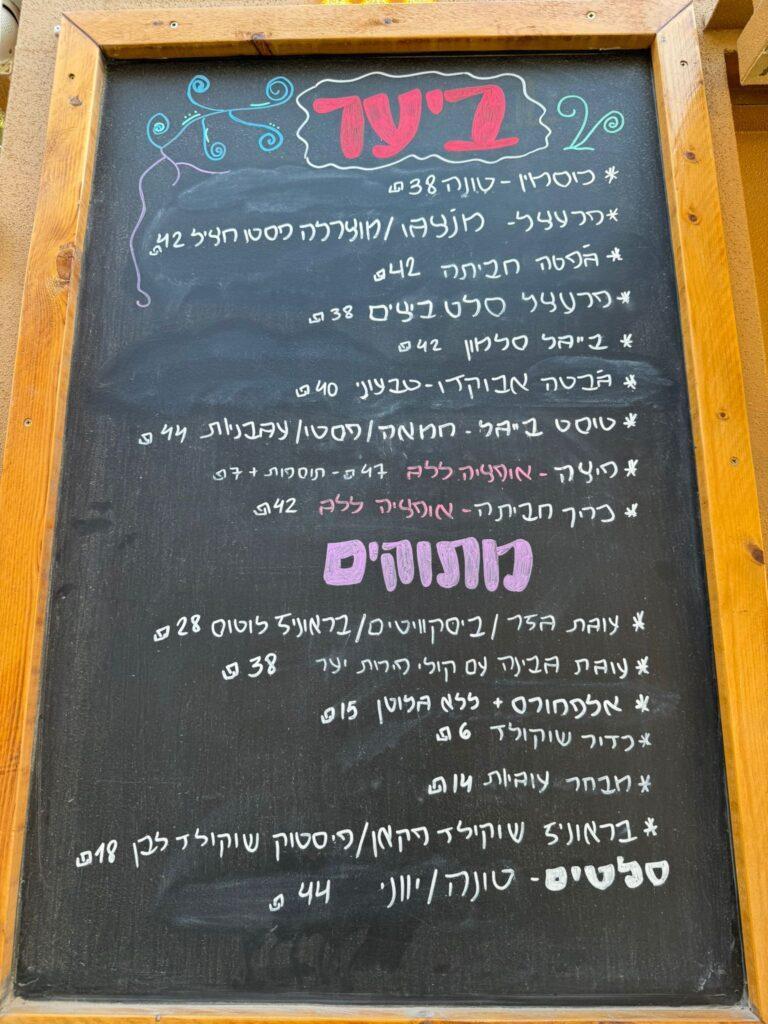 ביער
* כוסמין - טונה 38 ₪
* פרעצל - מנצ׳גו/מוצרלה פסטו חציל 42 ₪
* ג׳בטה חביתה 42 ₪
* פרעצל סלט ביצים 38 ₪
* בייגל סלמון 42 ₪
* ג׳בטה אבוקדו - טבעוני 40 ₪
* טוסט בייגל - חמאה/פסטו/עגבניות 44 ₪
* פיצה - אופציה ללג 47 ₪ - תוספות + 7 ₪
* כריך חביתה - אופציה ללג 42 ₪
מתוקים
* עוגת גזר/ביסקוויטים/בראוניז לוטוס 28 ₪
* עוגת גבינה עם קולי פירות יער 38 ₪
* אלפחורס + ללא גלוטן 15 ₪
* כדור שוקולד 6 ₪
* מבחר עוגיות 14 ₪
* בראוניז שוקולד פקאן/פיסטוק שוקולד לבן 18 ₪
סלטים - טונה/יווני 44 ₪